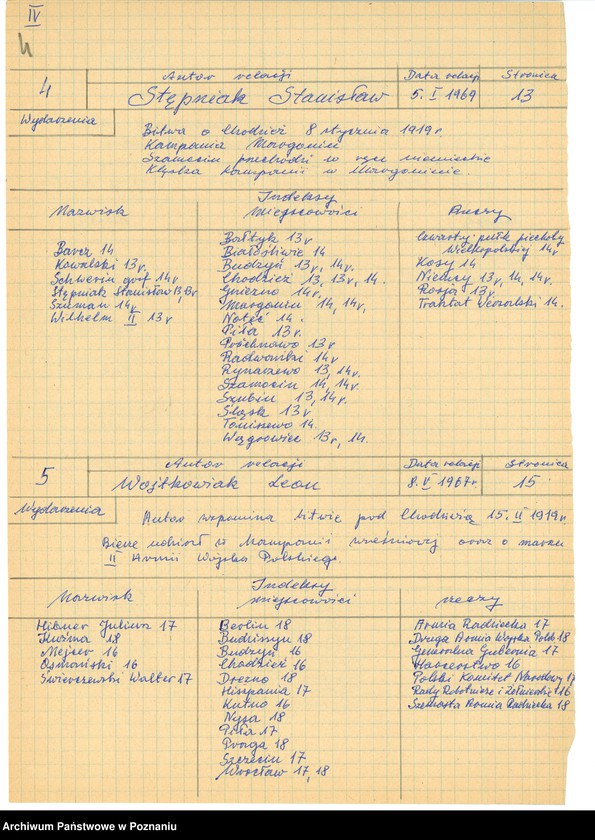 IV
4
Autor relacji
Data relacji
Stronica
4
Stępniak Stanisław
5. I 1969
13
Wydarzenia
Bitwa o Chodzież 8 stycznia 1919 r.
Kampania Margonin
Szamocin przechodzi w ręce niemieckie
Klęska kampanii w Margoninie.
Indeksy
Nazwisk
Miejscowości
Rzeczy
Barcz 14
Kowalski 13v.
Schwerin graf 14v
Stępniak Stanisław 13, 13v
Szuman 14v
Wilhelm II 13v
Bałtyk 13v
Białośliwie 14
Budzyń 13v, 14v.
Chodzież 13, 13v, 14.
Gniezno 14v.
Margonin 14, 14v,
Noteć 14.
Piła 13v.
Próchnowo 13v
Radwonki 14v
Rynarzewo 13, 14v.
Szamocin 14, 14v.
Szubin 13, 14v.
Śląsk 13v
Tomiszewo 14.
Wągrowiec 13v, 14.
Czwarty pułk piechoty
Wielkopolskiej 14v
Kosy 14
Niemcy 13v, 14, 14v.
Rosja 13v.
Traktat Wersalski 14.
Autor relacji
Data relacji
Stronica
5
Wojtkowiak Leon
8. V 1967r.
15
Wydarzenia
Autor wspomina bitwę pod Chodzieżą 15. II 1919r.
Bierze udział w Kampanii wrześniowej oraz o marszu
II Armii Wojska Polskiego.
Indeksy
Nazwisk
Miejscowości
rzeczy
Hibner Juliusz 17
Kuźma 18
Mejser 16
Osmański 16
Świerczewski Walter 17
Berlin 18
Budziszyn 18
Budzyń 16
Chodzież 16
Drezno 18
Hiszpania 17
Kutno 16
Nysa 18
Piła 17
Praga 18
Szczecin 17
Wrocław 17, 18
Armia Radziecka 17
Druga Armia Wojska Polsk. 18
Generalna Gubernia 17
Harcerstwo 16
Polski Komitet Narodowy 17
Rady Robotnicze i Żołnierskie 16
Szemasta Armia Radziecka 18
Archiwum Państwowe w Poznaniu